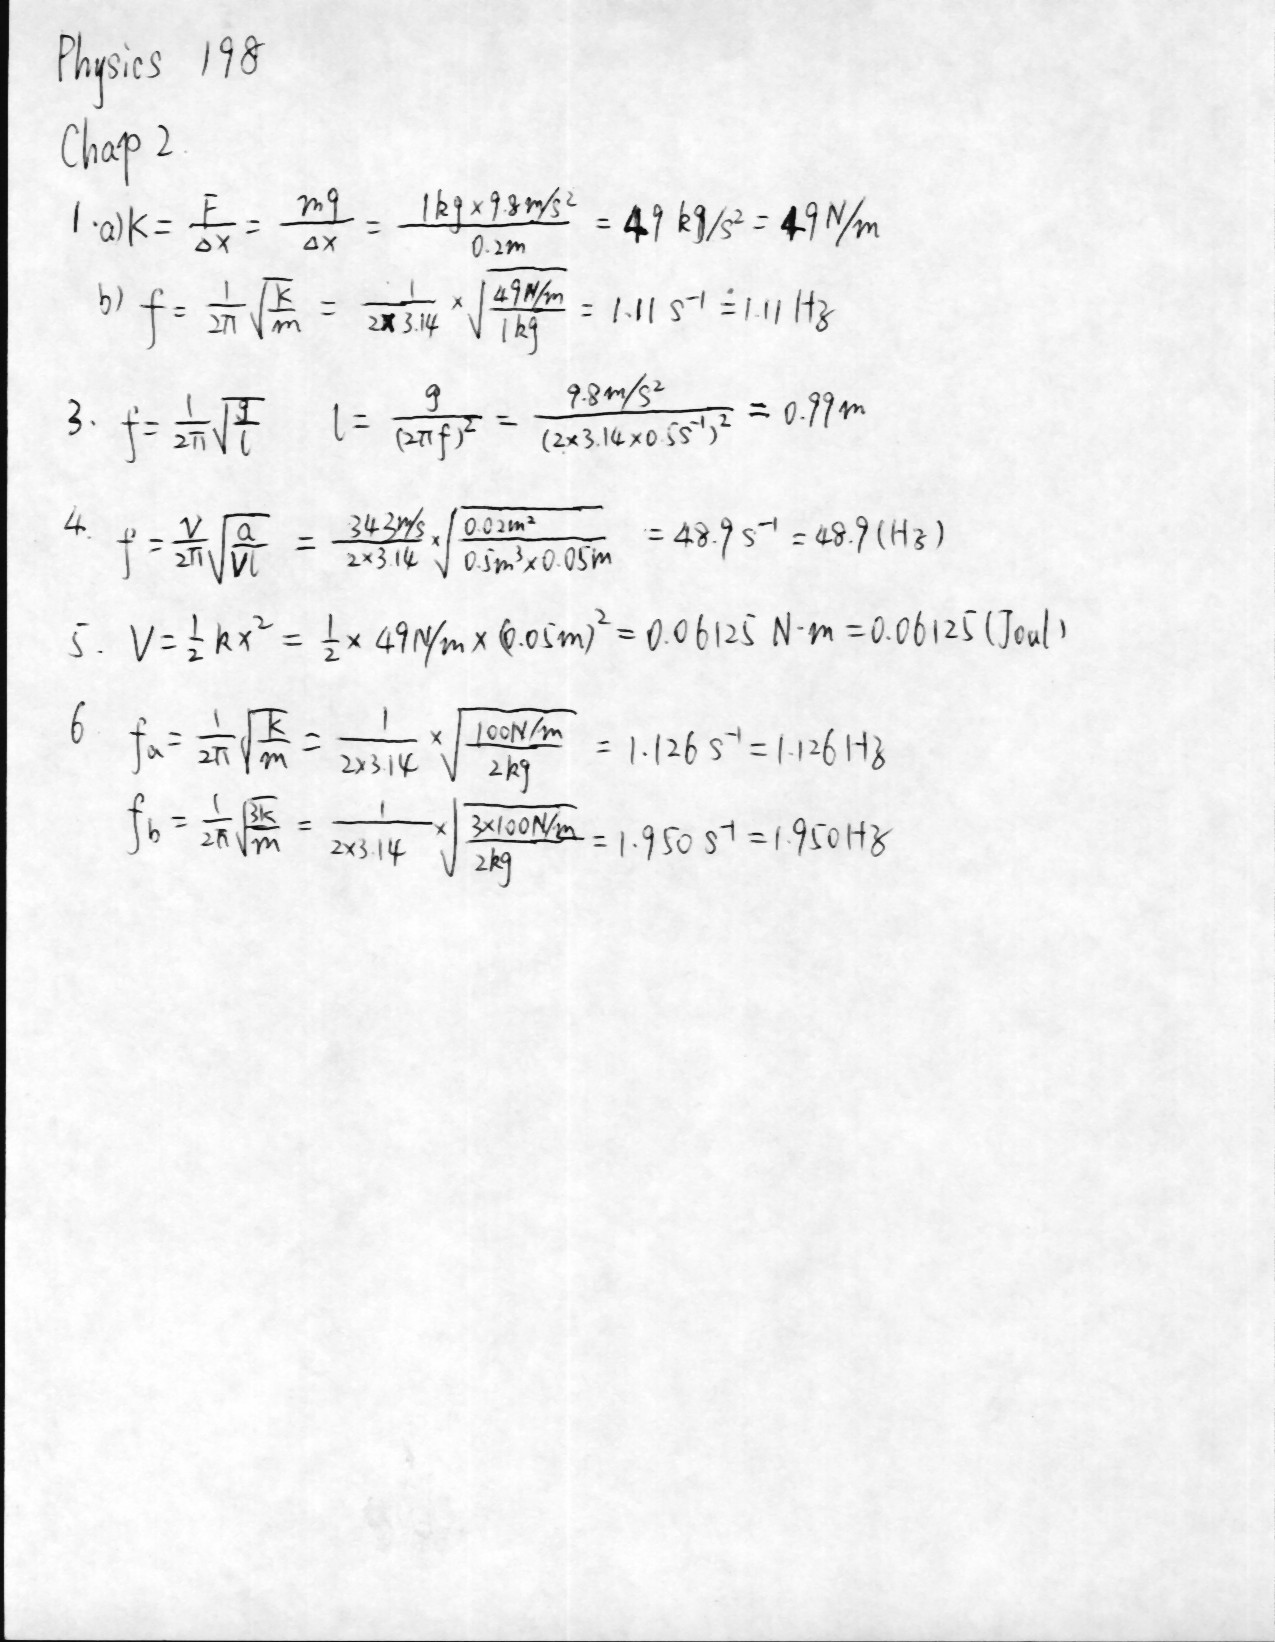 Physics 198
Chap 2.
1. a) K = F/Δx = mg/Δx = 1kg × 9.8m/s² / 0.2m = 49 kg/s² = 49 N/m
b) f = 1/2π √(k/m) = 1/(2×3.14) × √(49N/m / 1kg) = 1.11 s⁻¹ ≐ 1.11 Hz
3. f = 1/2π √(g/l) l = g/(2πf)² = 9.8m/s² / (2×3.14×0.5s⁻¹)² = 0.99m
4. f = v/2π √(a/Vl) = 343m/s / (2×3.14) × √(0.02m² / 0.5m³×0.05m) = 48.9 s⁻¹ = 48.9 (Hz)
5. V = 1/2 kx² = 1/2 × 49N/m × (0.05m)² = 0.06125 N·m = 0.06125 (Joul)
6 fa = 1/2π √(k/m) = 1/(2×3.14) × √(100N/m / 2kg) = 1.126 s⁻¹ = 1.126 Hz
fb = 1/2π √(3k/m) = 1/(2×3.14) × √(3×100N/m / 2kg) = 1.950 s⁻¹ = 1.950 Hz